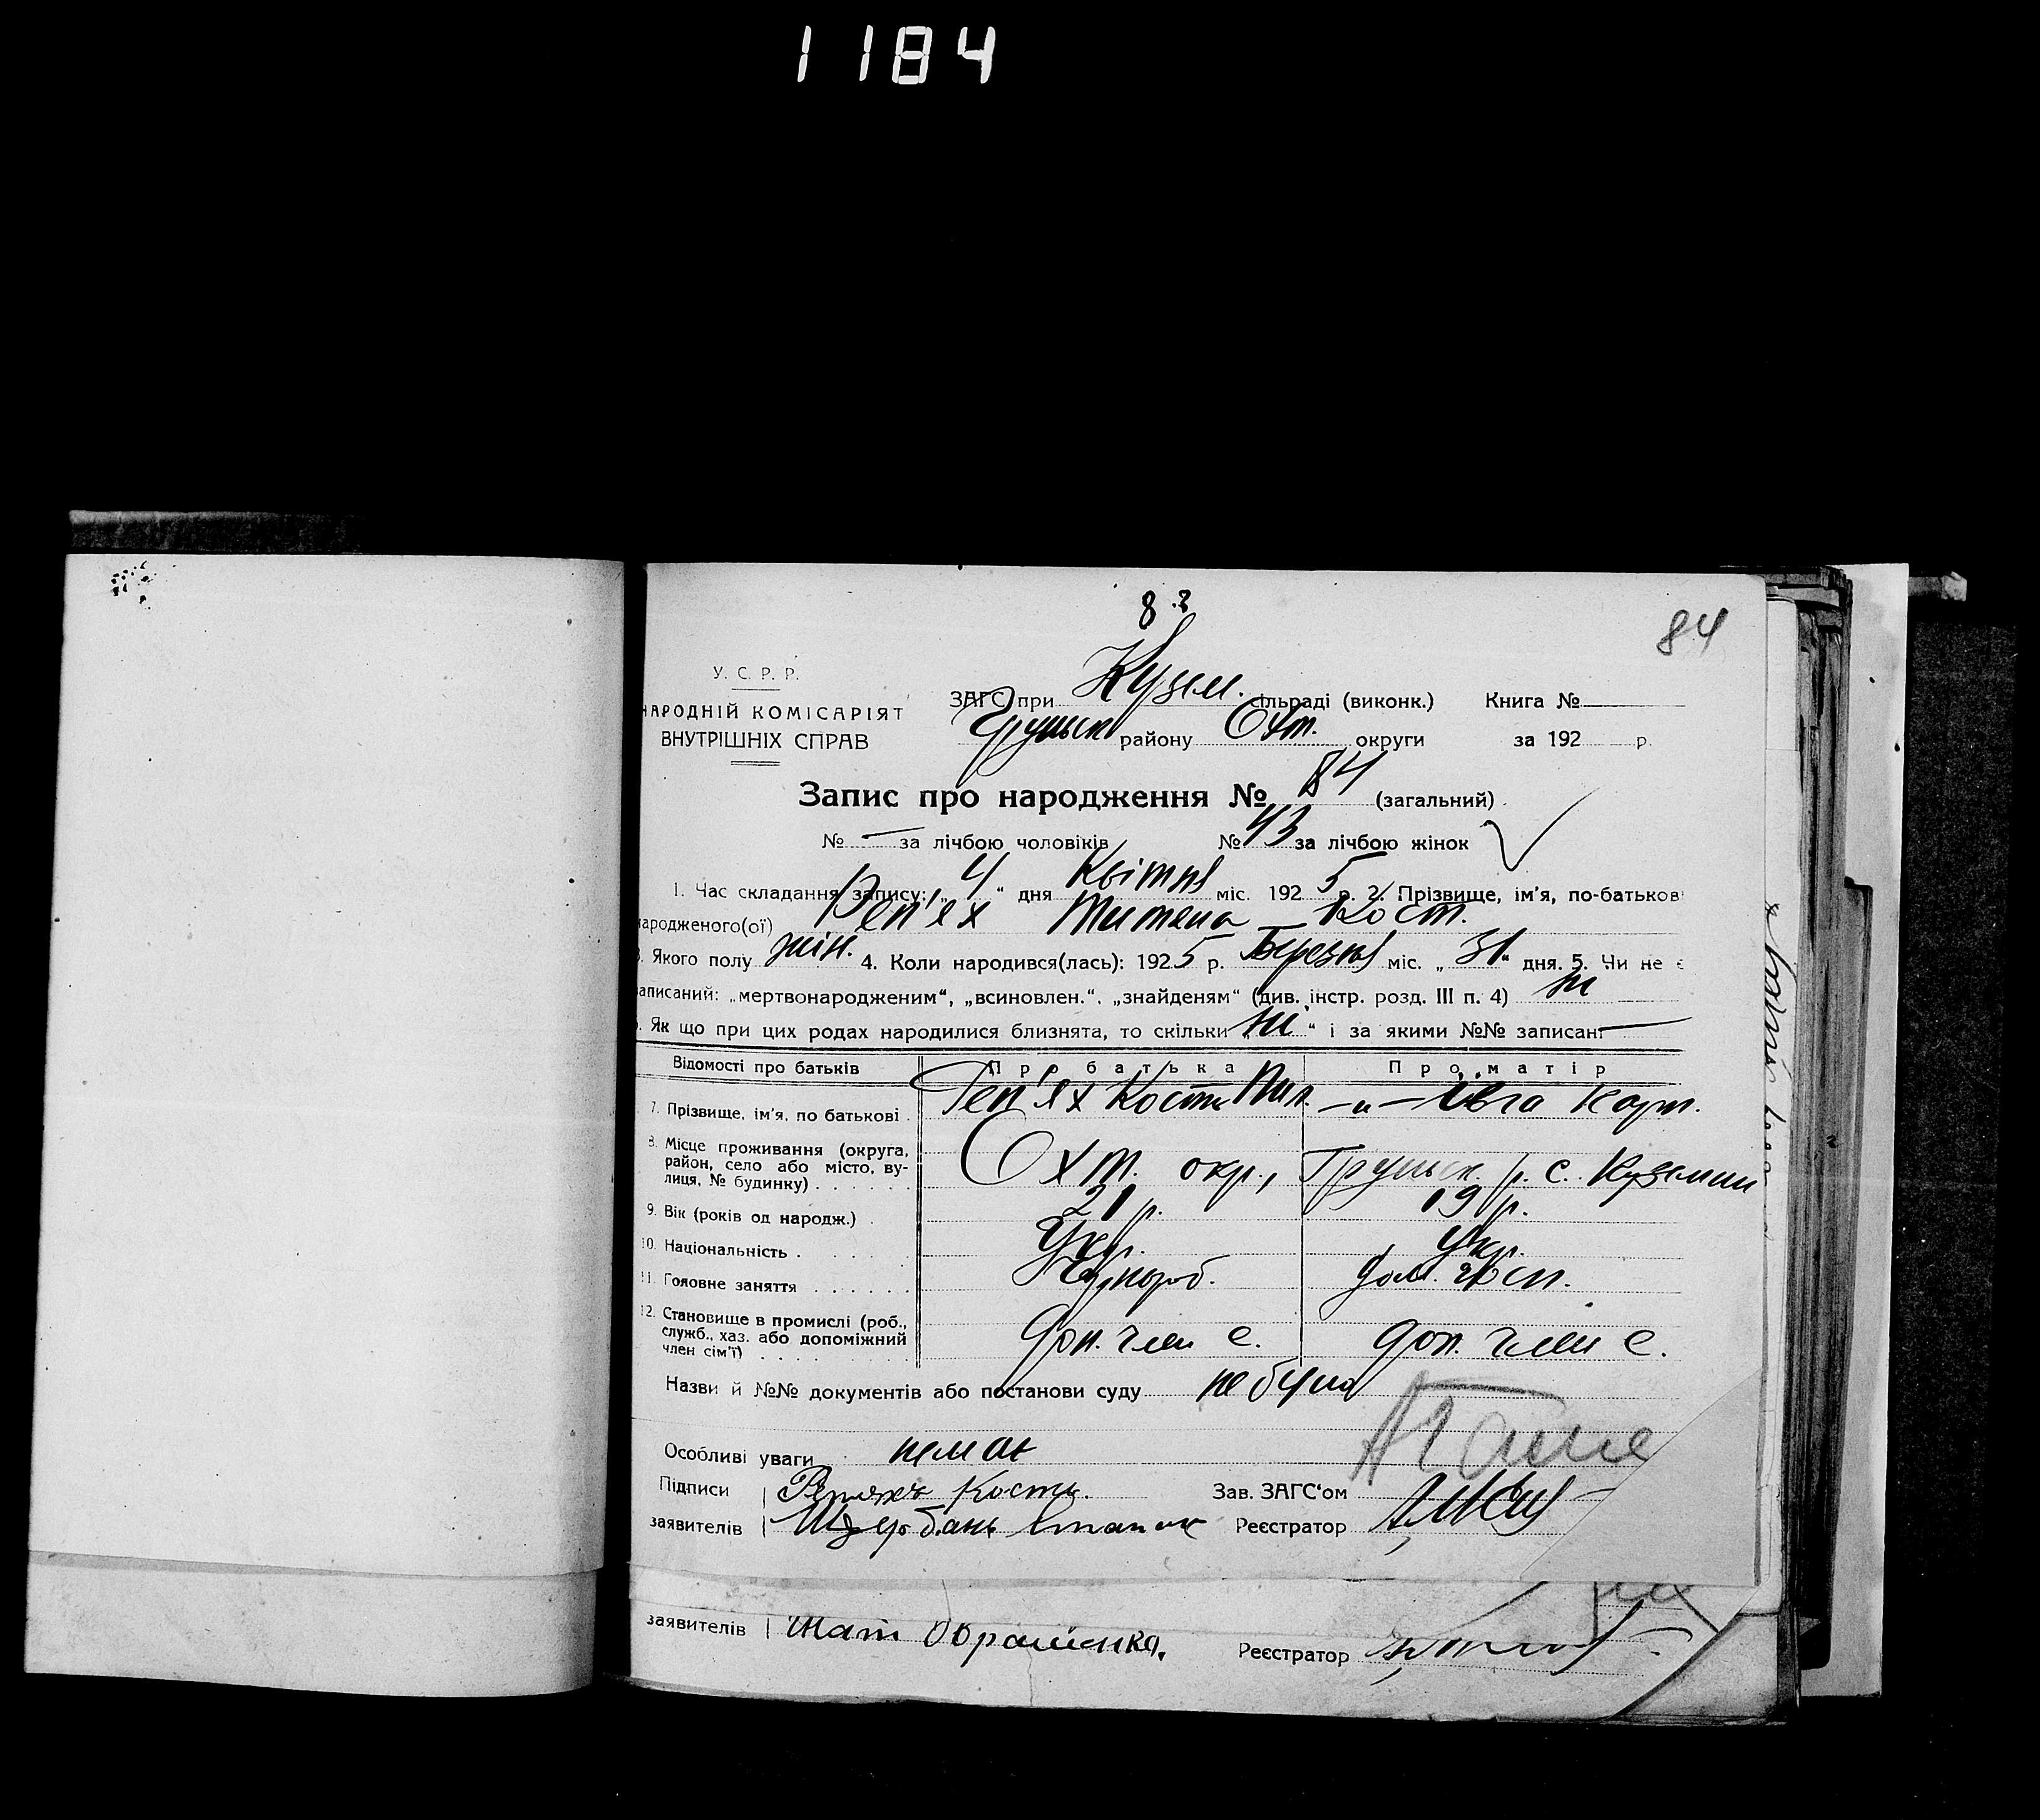 1184
8
84
У. С. Р. Р.
НАРОДНІЙ КОМІСАРІЯТ
ВНУТРІШНІХ СПРАВ
ЗАГС при Кузем. сільраді (виконк.) Книга №
Груньск району Охт. округи за 192 р.
Запис про народження № 84 (загальний)
№ — за лічбою чоловіків № 43 за лічбою жінок
1. Час складання запису: „4“ дня Квітня міс. 1925 р. 2. Прізвище, ім'я, по-батькові
народженого(ої) Реп'ях Титяна Кост.
3. Якого полу жін. 4. Коли народився(лась): 1925 р. Березня міс. „31“ дня. 5. Чи не є
записаний: „мертвонародженим“, „всиновлен.“, „знайденям“ (див. інстр. розд. III п. 4) ні
6. Як що при цих родах народилися близнята, то скільки „ні“ і за якими №№ записані —
Відомості про батьків Про батька Про матір
7. Прізвище, ім'я, по батькові Реп'ях Кость Пил. —„— Івга Карп.
8. Місце проживання (округа,
район, село або місто, ву-
лиця, № будинку) Охт. окр., Груньск. р. с. Куземин
9. Вік (років од народж.) 21 р. 19 р.
10. Національність Укр. Укр.
11. Головне заняття Хлібороб. Дом. госп.
12. Становище в промислі (роб.,
служб., хаз. або допоміжний
член сім'ї) Доп. член с. Доп. член с.
Назви й №№ документів або постанови суду не було
Особливі уваги немає
Підписи Репяхъ Кость. Зав. ЗАГС'ом
заявителів Щербань Реєстратор
заявителів Реєстратор